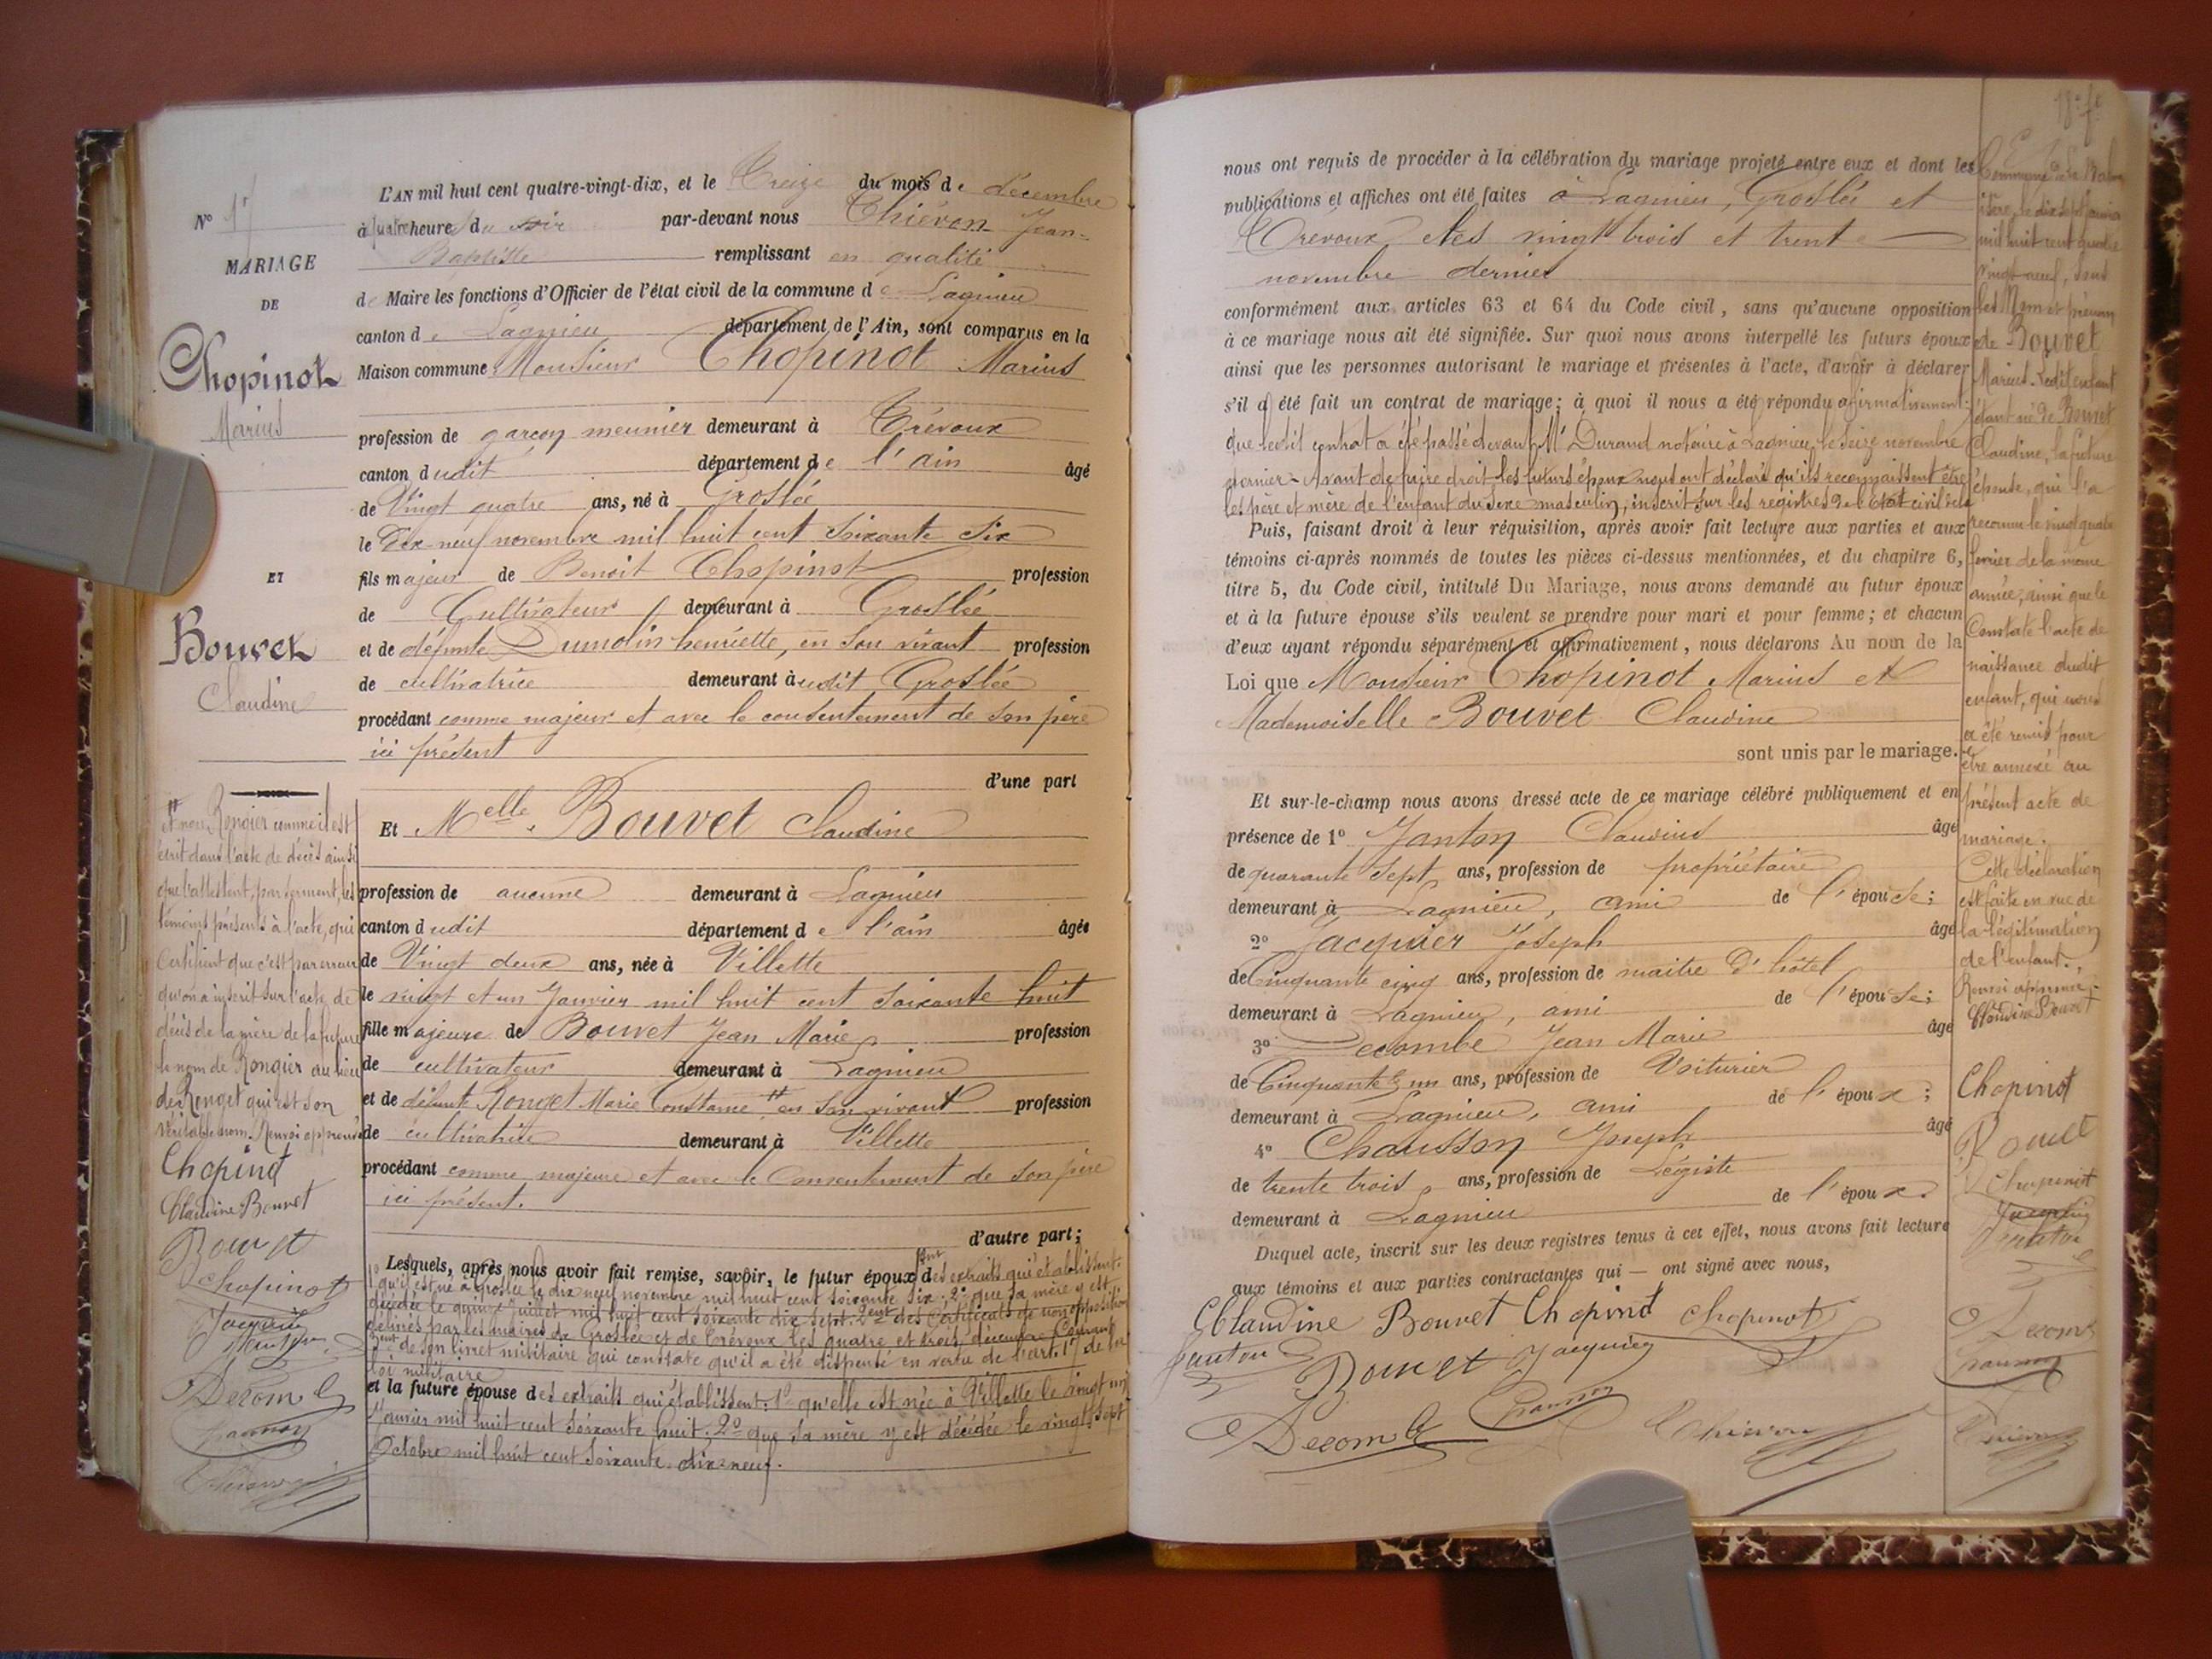 N° 17
MARIAGE
DE
Chopinot
Marius
ET
Bouvet
Claudine
L'AN mil huit cent quatre-vingt-dix, et le Treize du mois de décembre
à quatre heures du soir par-devant nous Thiévon Jean-
Baptiste remplissant en qualité
de Maire les fonctions d'Officier de l'état civil de la commune de Lagnieu
canton de Lagnieu département de l'Ain, sont comparus en la
Maison commune Monsieur Chopinot Marius
profession de garçon meunier demeurant à Trévoux
canton dudit département de l'ain âgé
de Vingt quatre ans, né à Groslée
le Dix-neuf novembre mil huit cent soixante six
fils majeur de Benoit Chopinot profession
de Cultivateur demeurant à Groslée
et de défunte Dumolin henriette, en son vivant profession
de cultivatrice demeurant audit Groslée
procédant comme majeur et avec le consentement de son père
ici présent
d'une part
Et Melle Bouvet Claudine
profession de aucune demeurant à Lagnieu
canton dudit département de l'ain âgée
de Vingt deux ans, née à Villette
le vingt et un Janvier mil huit cent soixante huit
fille majeure de Bouvet Jean Marie profession
de cultivateur demeurant à Lagnieu
et de défunte Ronget Marie Constance # en son vivant profession
de cultivatrice demeurant à Villette
procédant comme majeure et avec le Consentement de son père
ici présent.
d'autre part;
Lesquels, après nous avoir fait remise, savoir, le futur époux 1ent des extraits qui établissent:
1° qu'il est né à Groslée le dix neuf novembre mil huit cent soixante six; 2° que sa mère y est
décédée le quinze Juillet mil huit cent soixante dix sept. 2ent des Certificats de non opposition
délivrés par les maires de Groslée et de Trévoux les quatre et trois décembre Courant
3ent de son livret militaire qui constate qu'il a été dispensé en vertu de l'art. 17 de la
loi militaire
et la future épouse des extraits qui établissent: 1° qu'elle est née à Villette le vingt un
Janvier mil huit cent soixante huit. 2° que sa mère y est décédée le vingt sept
Octobre mil huit cent soixante-dix-neuf.
# et non Rongier comme il est
écrit dans l'acte de décès ainsi
que l'attestent, par serment, les
témoins présents à l'acte, qui
Certifient que c'est par erreur
qu'on a inscrit sur l'acte de
décès de la mère de la future
le nom de Rongier au lieu
de Ronget qui est son
véritable nom. Renvoi approuvé
Chopinot
Claudine Bouvet
Bouvet
Chopinot
Jacquier
Janton
Decombe
Chausson
Thiévon
nous ont requis de procéder à la célébration du mariage projeté entre eux et dont les
publications et affiches ont été faites à Lagnieu, Groslée et
Trévoux les vingt trois et trente
novembre dernier
conformément aux articles 63 et 64 du Code civil, sans qu'aucune opposition
à ce mariage nous ait été signifiée. Sur quoi nous avons interpellé les futurs époux
ainsi que les personnes autorisant le mariage et présentes à l'acte, d'avoir à déclarer
s'il a été fait un contrat de mariage; à quoi il nous a été répondu affirmativement:
que ledit contrat a été passé devant Me Durand notaire à Lagnieu, le seize novembre
dernier - Avant de faire droit les futurs époux nous ont déclaré qu'ils reconnaissent être
les père et mère de l'enfant du sexe masculin, inscrit sur les registres de l'Etat civil de la
Puis, faisant droit à leur réquisition, après avoir fait lecture aux parties et aux
témoins ci-après nommés de toutes les pièces ci-dessus mentionnées, et du chapitre 6,
titre 5, du Code civil, intitulé Du Mariage, nous avons demandé au futur époux
et à la future épouse s'ils veulent se prendre pour mari et pour femme; et chacun
d'eux ayant répondu séparément et affirmativement, nous déclarons Au nom de la
Loi que Monsieur Chopinot Marius et
Mademoiselle Bouvet Claudine
sont unis par le mariage.
Et sur-le-champ nous avons dressé acte de ce mariage célébré publiquement et en
présence de 1° Janton Claudius âgé
de quarante sept ans, profession de propriétaire
demeurant à Lagnieu, ami de l'épouse;
2° Jacquier Joseph âgé
de Cinquante cinq ans, profession de maitre d'hôtel
demeurant à Lagnieu, ami de l'épouse;
3° Decombe Jean Marie âgé
de Cinquante un ans, profession de Voiturier
demeurant à Lagnieu, ami de l'époux;
4° Chausson Joseph âgé
de trente trois ans, profession de Légiste
demeurant à Lagnieu de l'époux.
Duquel acte, inscrit sur les deux registres tenus à cet effet, nous avons fait lecture
aux témoins et aux parties contractantes qui — ont signé avec nous,
Claudine Bouvet Chopinot Chopinot
Janton Bouvet Jacquier
Decombe Chausson Thiévon
Commune de La Balme
isère, le dix sept janvier
mil huit cent quatre
vingt-neuf, sous
les Nom et prénom
de Bouvet
Marius. Ledit enfant
étant né de Bouvet
Claudine, la future
épouse, qui l'a
reconnu le vingt quatre
février de la même
année, ainsi que le
Constate l'acte de
naissance dudit
enfant, qui nous
a été remis pour
être annexé au
présent acte de
mariage.
Cette déclaration
est faite en vue de
la légitimation
de l'enfant.
Renvoi approuvé
Claudine Bouvet
Chopinot
Bouvet
Chopinot
Jacquier
Janton
Decombe
Chausson
Thiévon